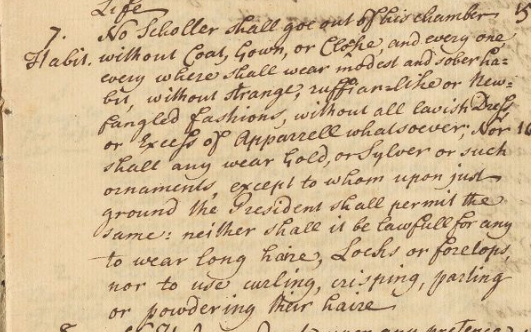 Life
7. No Scholler shall goe out of his chamber 15
Habit. without Coat, Gown, or Cloke, and every one
every where shall wear modest and sober ha-
bit, without strange, ruffian-like or New-
fangled fashions, without all lavish Dress
or Excess of Apparrell whatsoever; Nor 16
shall any wear Gold, or Sylver or such
ornaments, except to whom upon just
ground the President shall permit the
same: neither shall it be lawfull for any
to wear long haire, Locks or foretops,
nor to use curling, crisping, parting
or powdering their haire
upon any pretence